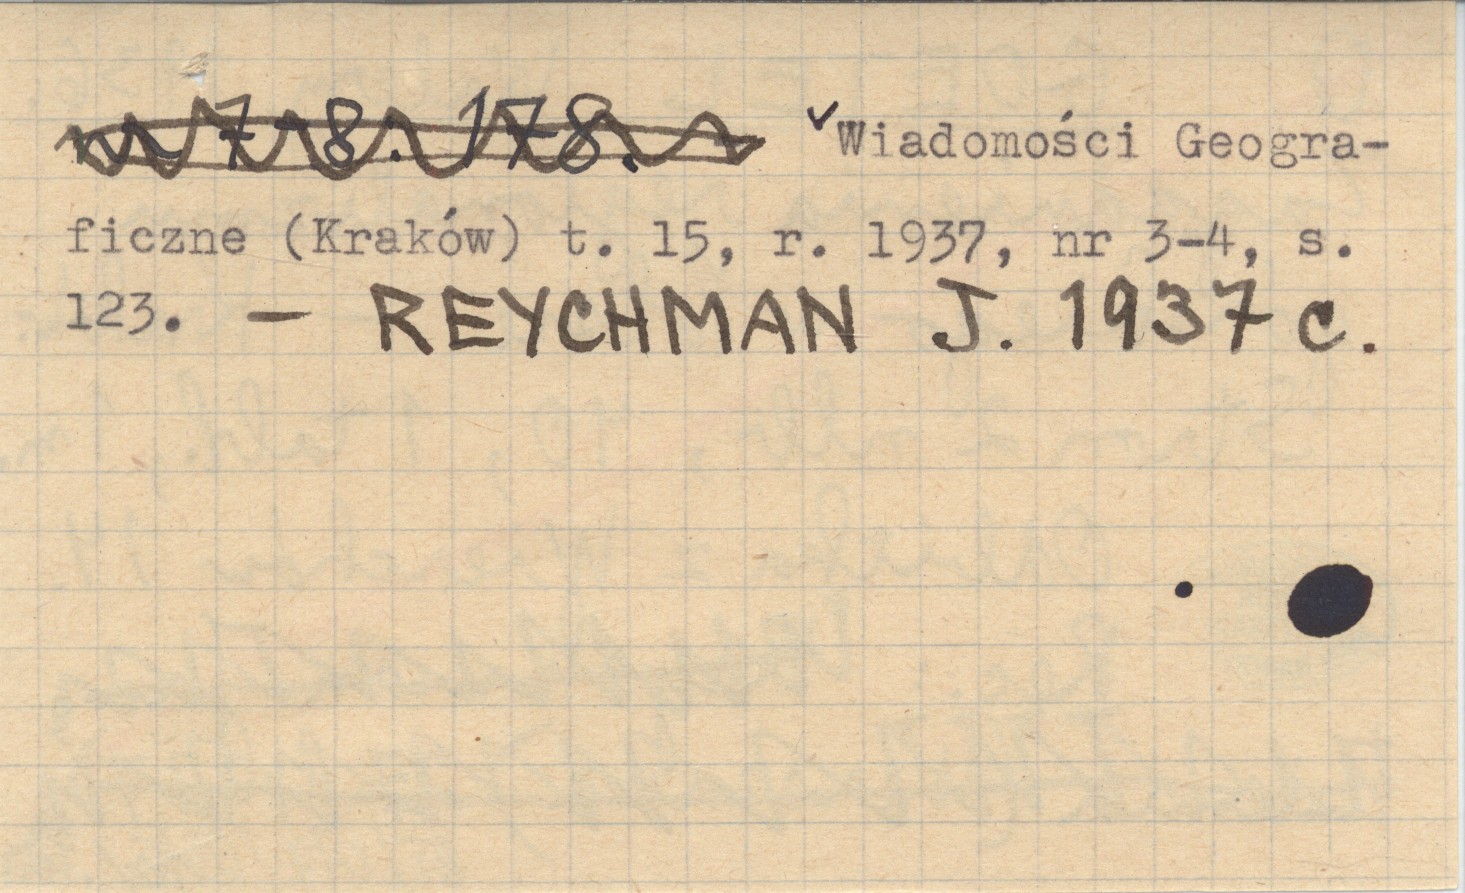 7 8. 178. Wiadomości Geogra-
ficzne (Kraków) t. 15, r. 1937, nr 3-4, s.
123. — REYCHMAN J. 1937 c.